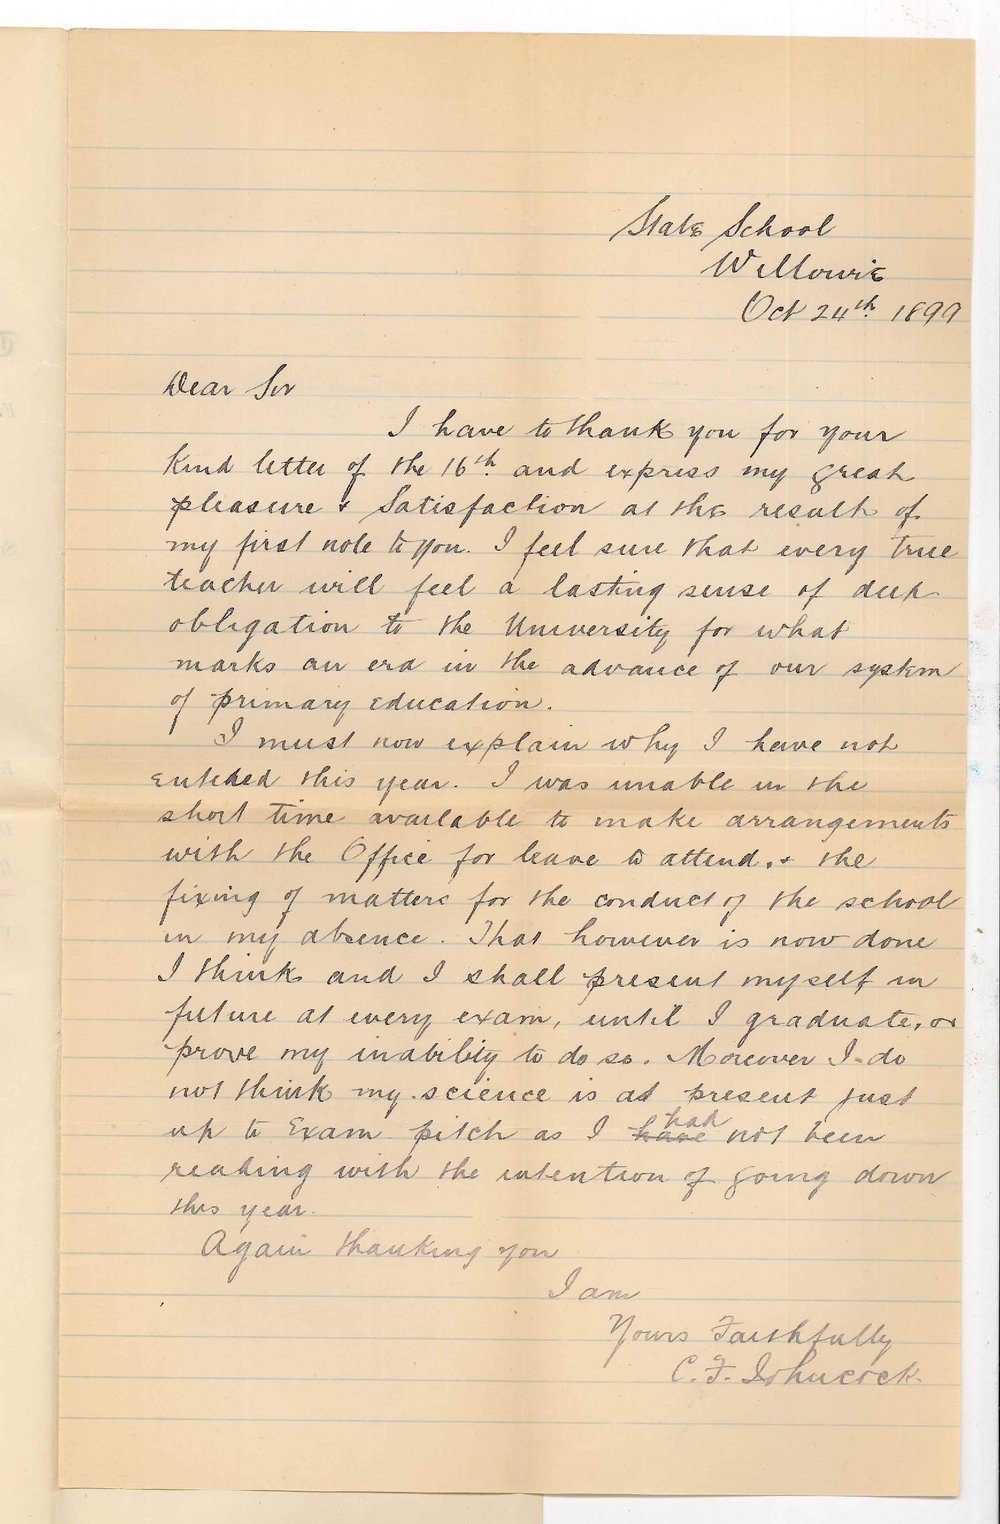 State School
Willowie
Oct 24th 1899
Dear Sir
I have to thank you for your
kind letter of the 16th and express my great
pleasure & Satisfaction at the result of
my first note to you. I feel sure that every true
teacher will feel a lasting sense of deep
obligation to the University for what
marks an era in the advance of our system
of primary education.
I must now explain why I have not
entered this year. I was unable in the
short time available to make arrangements
with the Office for leave to attend, & the
fixing of matters for the conduct of the school
in my absence. That however is now done
I think and I shall present myself in
future at every exam, until I graduate, or
prove my inability to do so. Moreover I do
not think my science is at present just
had
up to Exam pitch as I have not been
reading with the intention of going down
this year.
Again thanking you
I am
Yours Faithfully
C. F. Johncock.